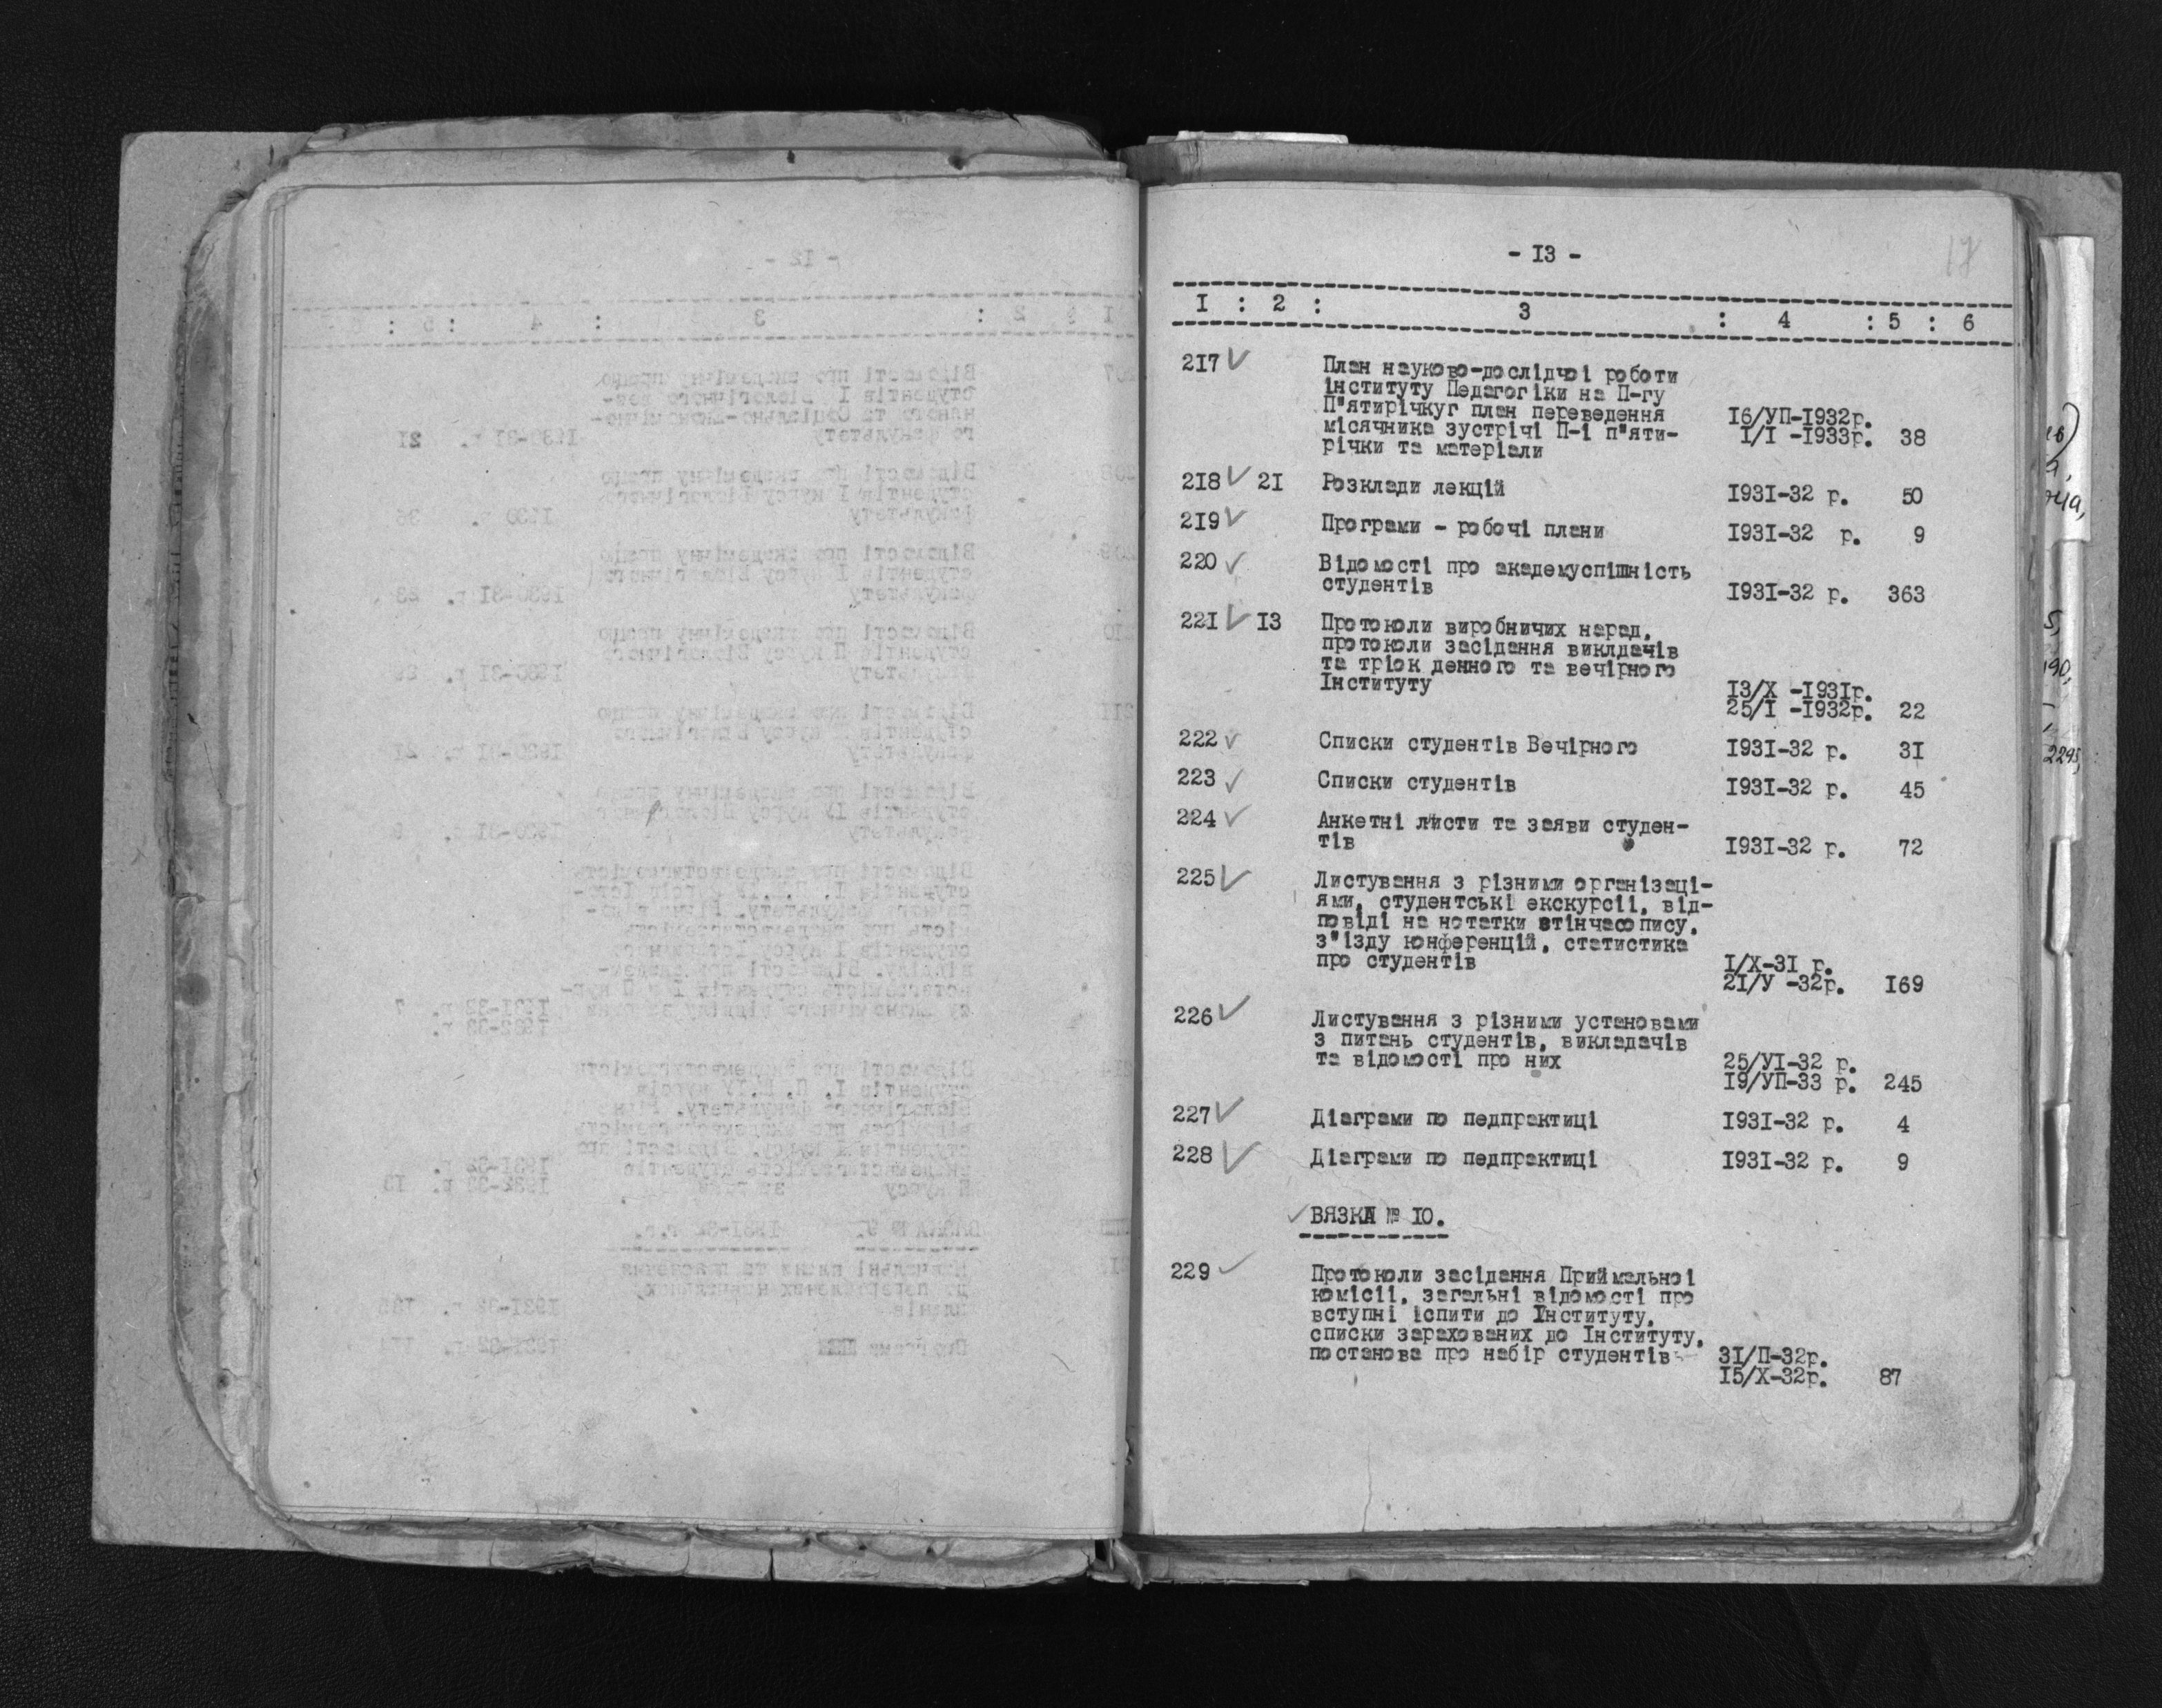 - I3 -
17
I : 2 : 3 : 4 : 5 : 6
217 План науково-дослідчоі роботи
інституту Педагогіки на П-гу
П"ятирічкуг план переведення 16/УП-1932р.
місячника зустрічі П-і п"яти- I/I -1933р. 38
річки та матеріали
218 21 Розклади лекцій I93I-32 р. 50
219 Програми - робочі плани I93I-32 р. 9
220 Відомості про академуспішність
студентів I93I-32 р. 363
221 I3 Протоколи виробничих нарад,
протоколи засідання виклдачів
та тріок денного та вечірного
Інституту I3/X -I93Iр.
25/I -I932р. 22
222 Списки студентів Вечірного I93I-32 р. 3I
223 Списки студентів I93I-32 р. 45
224 Анкетні листи та заяви студен-
тів I93I-32 р. 72
225 Листування з різними організаці-
ями, студентські екскурсіі, від-
повіді на нотатки втінчасопису,
з"ізду конференцій, статистика
про студентів I/X-3I р.
2I/У -32р. I69
226 Листування з різними установами
з питань студентів, викладачів
та відомості про них 25/УI-32 р.
I9/УП-33 р. 245
227 Діаграми по педпрактиці I93I-32 р. 4
228 Діаграми по педпрактиці I93I-32 р. 9
ВЯЗКА № I0.
229 Протоколи засідання Приймальноі
комісіі, загальні відомості про
вступні іспити до Інституту,
списки зарахованих до Інституту,
постанова про набір студентів 3I/П-32р.
I5/X-32р. 87